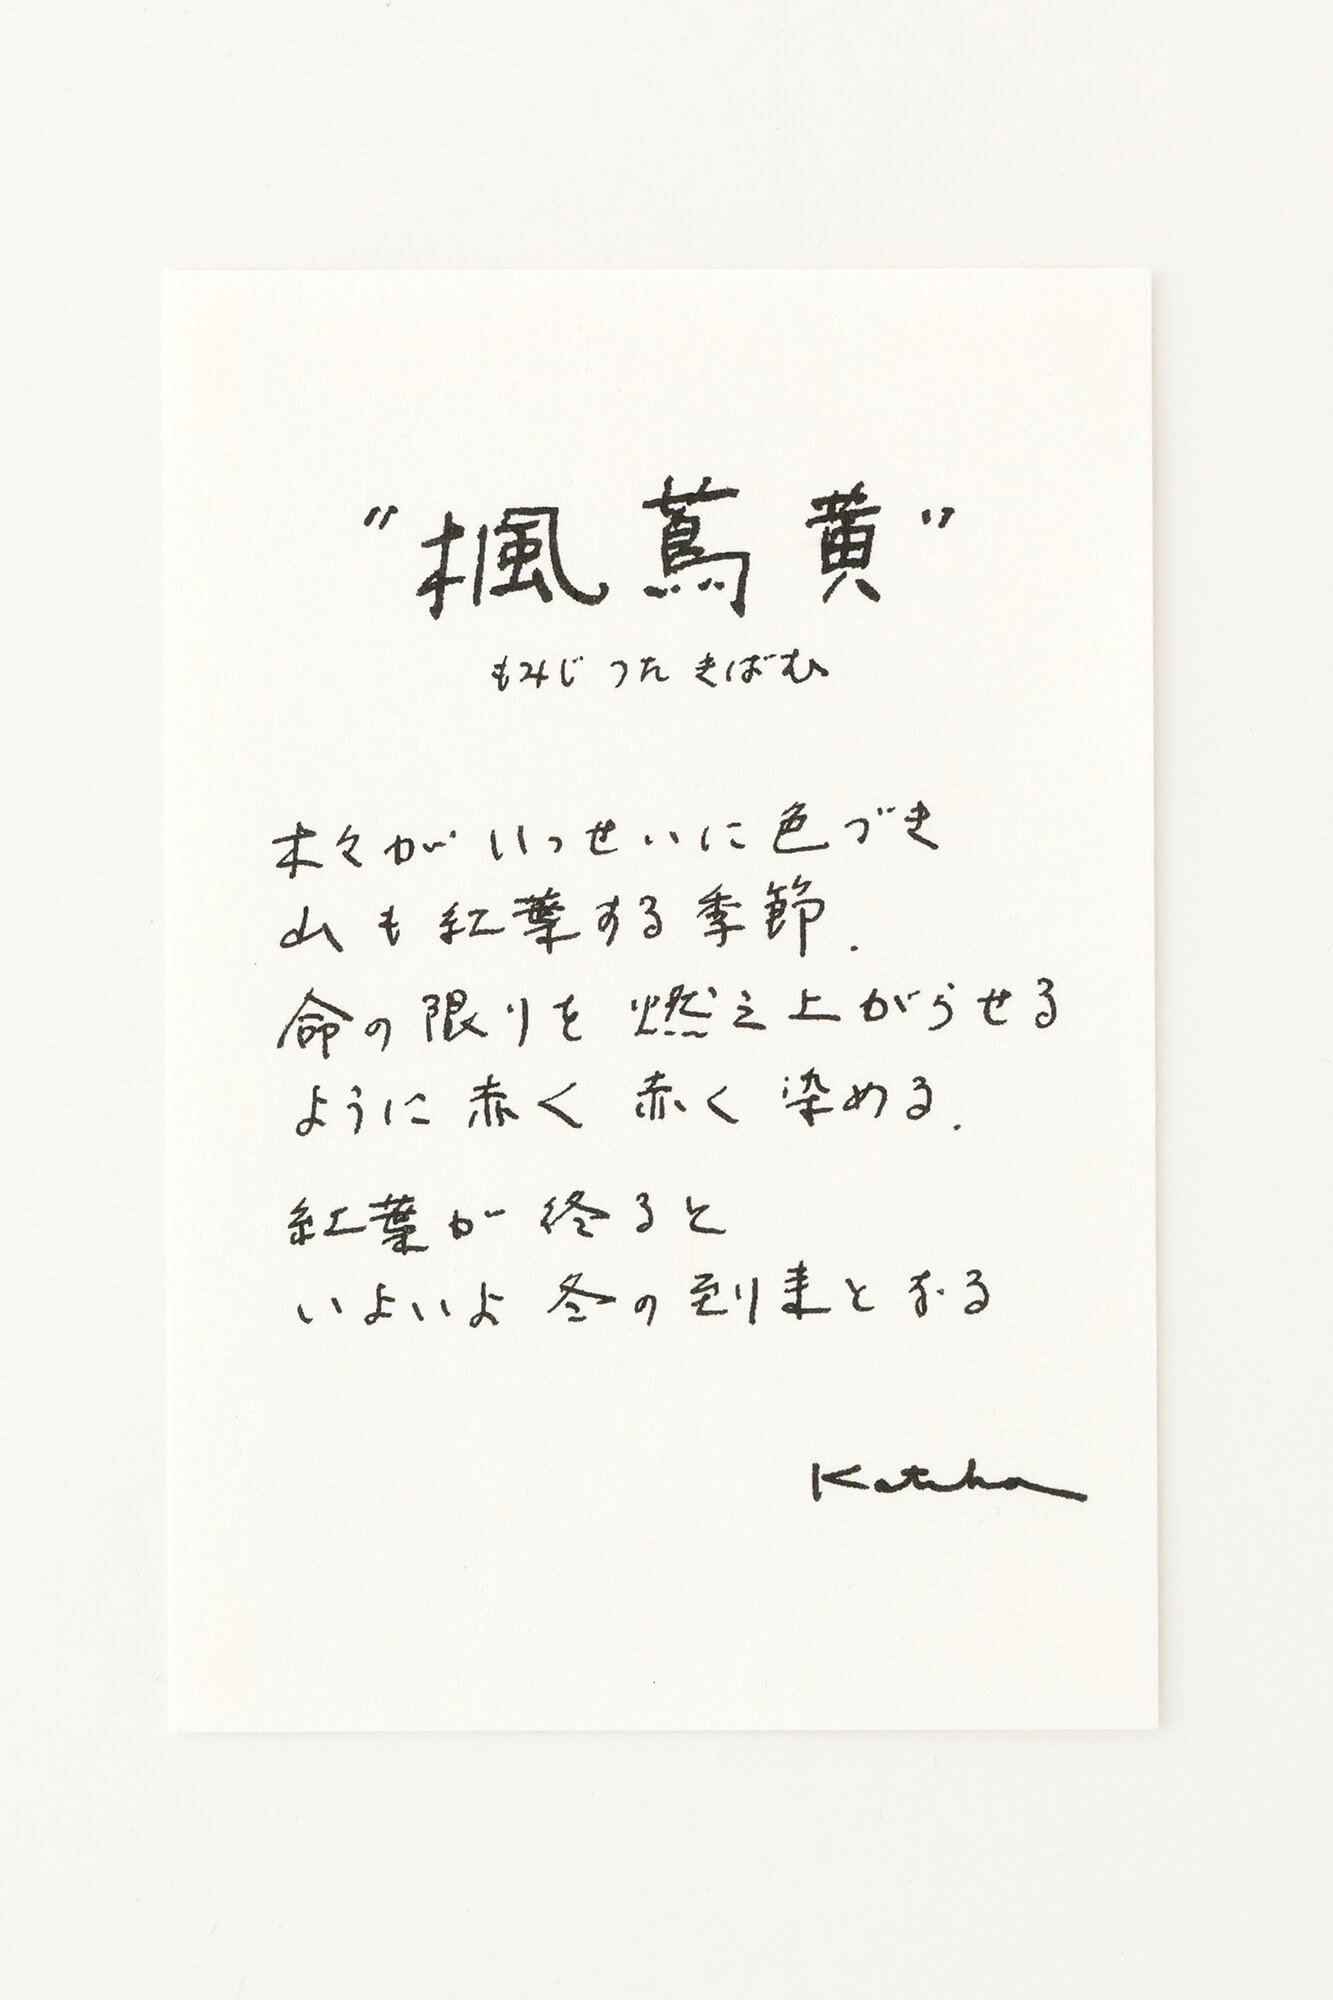 "楓蔦黄"
もみじ つた きばむ
木々が いっせいに色づき
山も紅葉する季節.
命の限りを 燃え上がらせる
ように 赤く 赤く 染める.
紅葉が 終ると
いよいよ 冬の到来となる